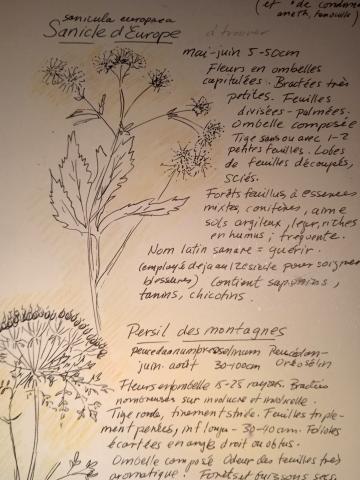 (et de
aneth, fenouille)
sanicula europaea
Sanicle d'Europe
à trouver
mai-juin 5-50cm
Fleurs en ombelles
capitulées. Bractées très
petites. Feuilles
divisées-palmées.
Ombelle composée
Tige sans ou avec 1-2
petites feuilles. Lobes
de feuilles découpés,
sciés.
Forêts feuillus, à essences
mixtes, conifères, aime
sols argileux, leger, riches
en humus; fréquente.
Nom latin sanare = guérir.
(employé deja au 12e siecle pour soigner
blessures) contient saponines,
tanins,
Persil des montagnes
peucedanum oreoselinum Peucédan-
juin. août 30-100cm Oréosélin
Fleurs en ombelle 15-25 rayons. Bractées
nombreuses sur involucre et involucelle.
Tige ronde, finement striée. Feuilles triple-
ment pennées, inf longu- 30-40cm. Folioles
écartées en angle droit ou obtus.
Ombelle composé Odeur des feuilles très
aromatique! Forêts et buissons secs.